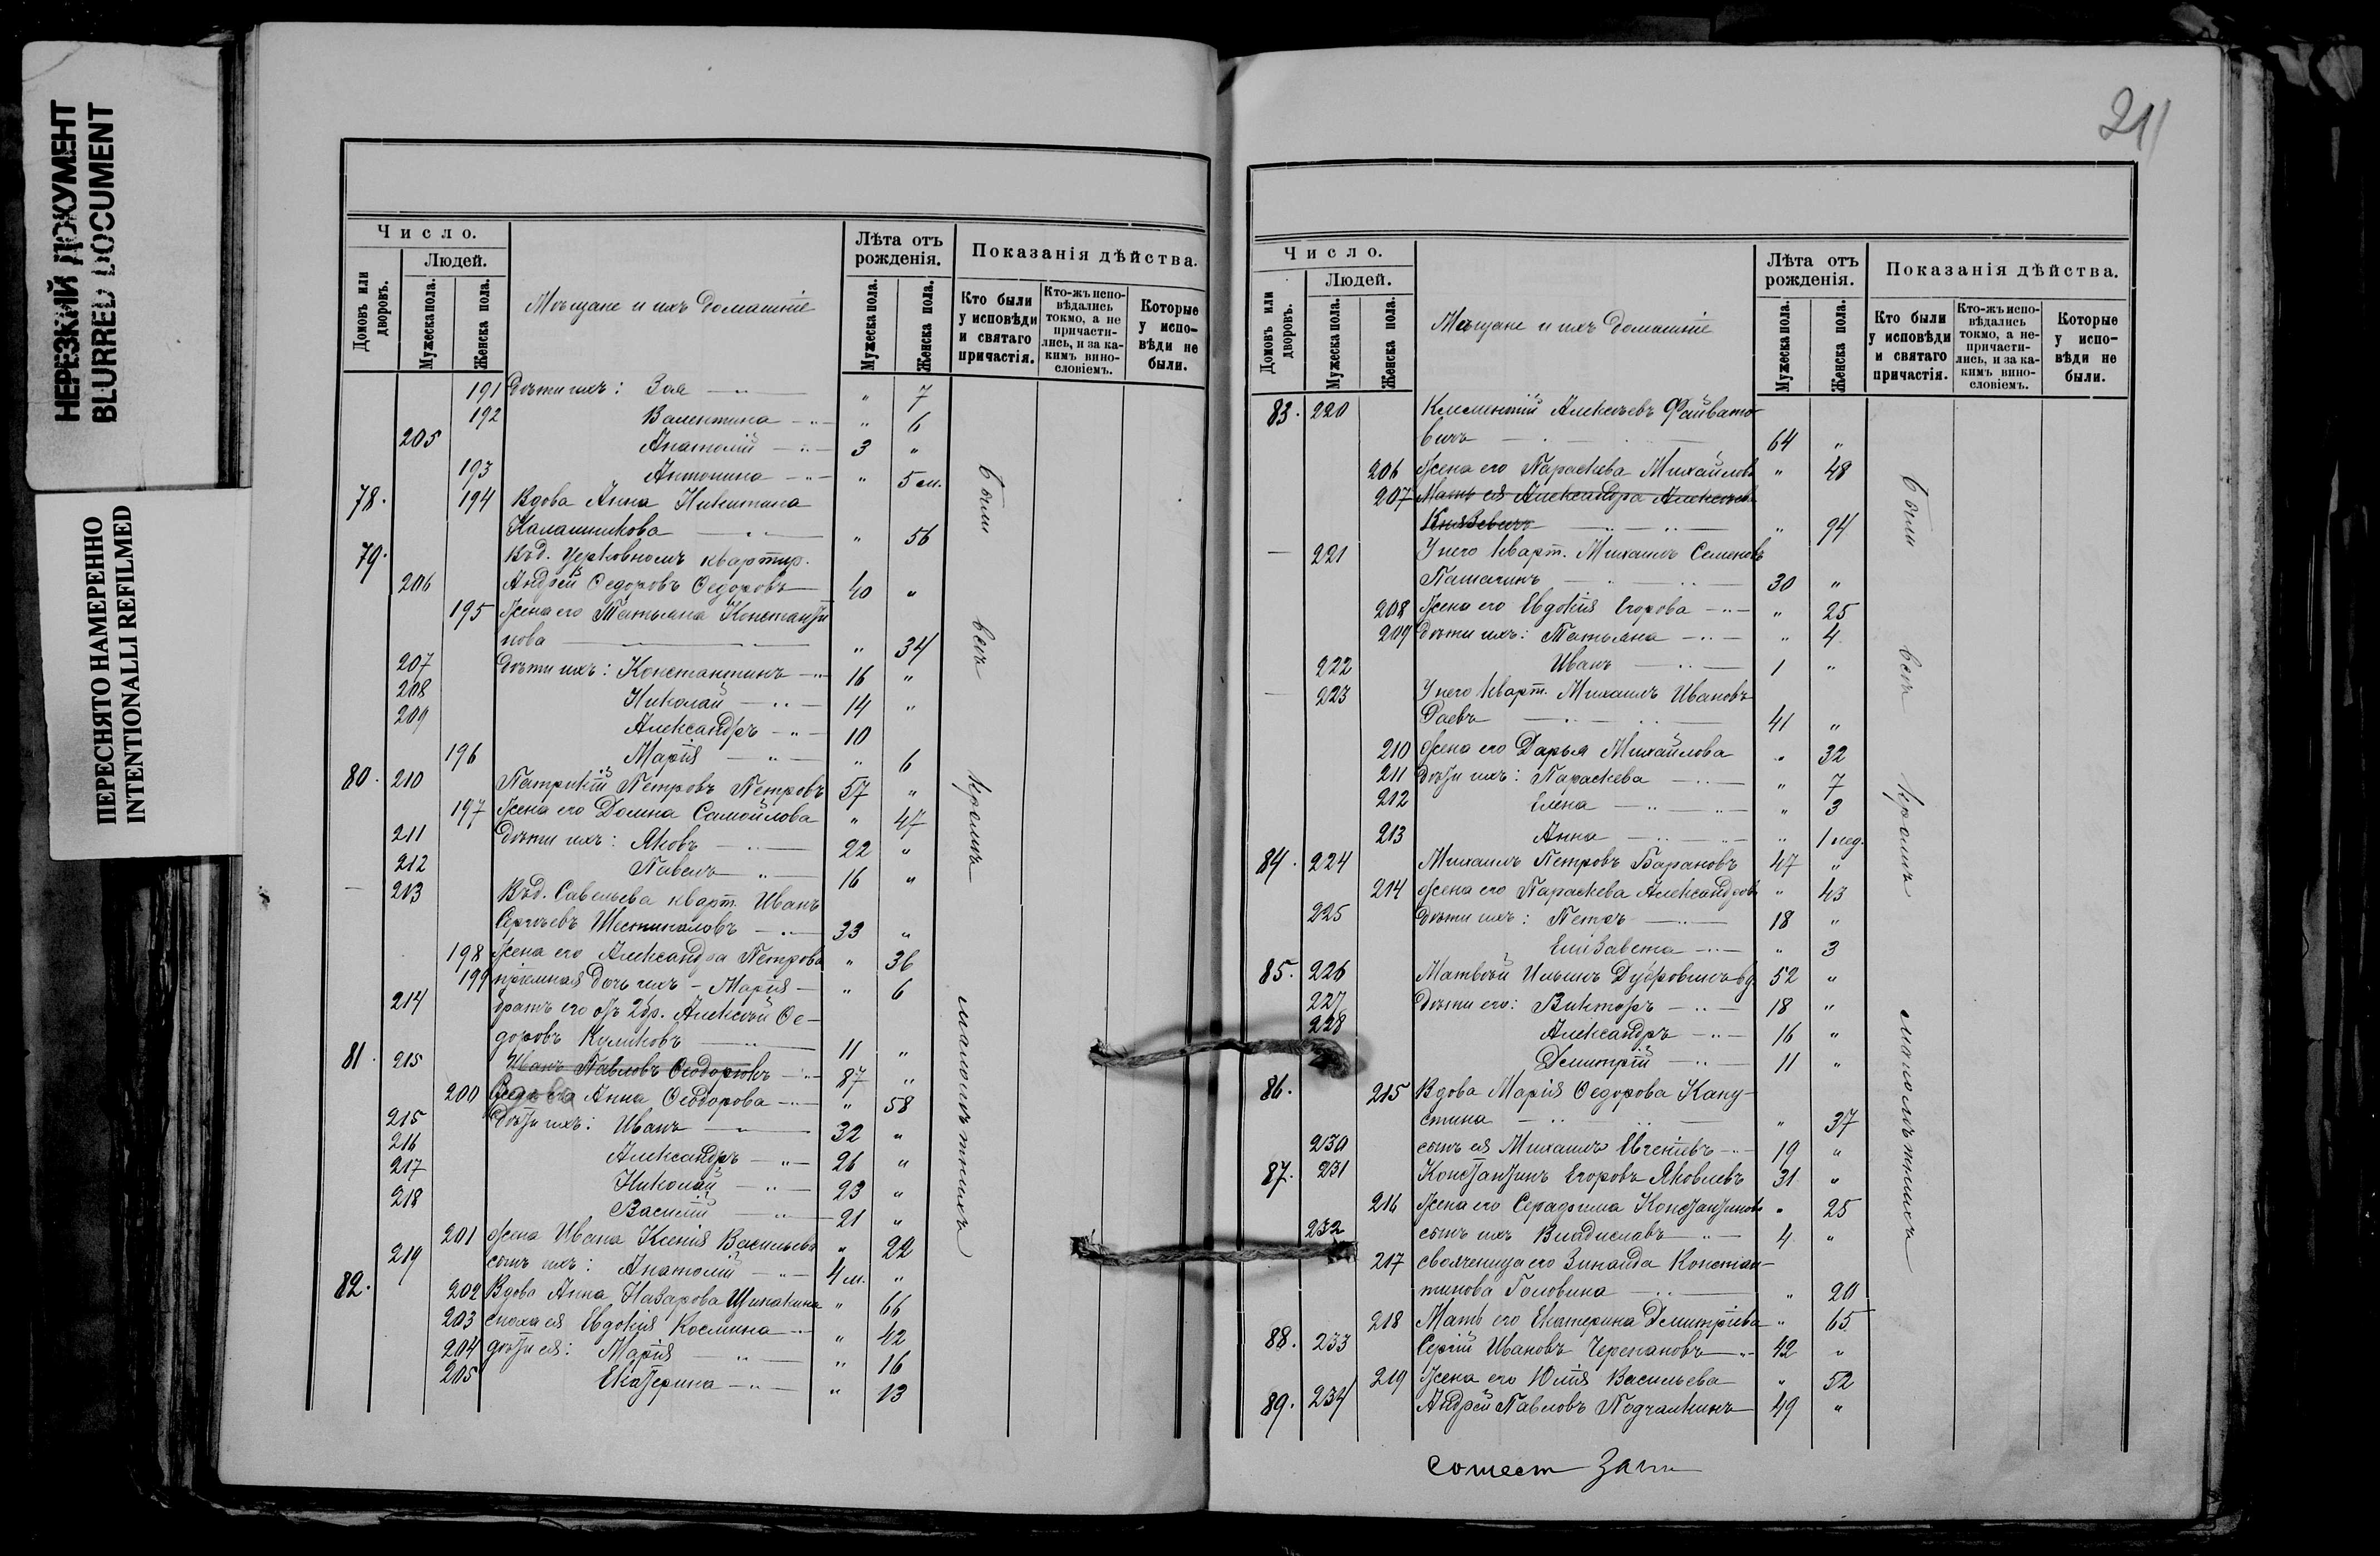 НЕРЕЗКИЙ ДОКУМЕНТ
BLURRED DOCUMENT
ПЕРЕСНЯТО НАМЕРЕННО
INTENTIONALLI REFILMED
Число.
Людей.
Домовъ или дворовъ.
Мужеска пола.
Женска пола.
Мѣщане и ихъ домашніе
Лѣта отъ рожденія.
Мужеска пола.
Женска пола.
Показанія дѣйства.
Кто были у исповѣди и святаго причастія.
Кто-жъ испо-вѣдались токмо, а не причасти-лись, и за ка-кимъ вино-словіемъ.
Которые у испо-вѣди не были.
191 Дѣти ихъ: Зоя — " 7
192 Валентина — " 6
205 Анатолій — 3 "
193 Антонина — " 5 м.
78. 194 Вдова Анна Никитина
Калашникова — " 56
79. Въ д. Церковномъ квартир.
206 Андрей Ѳедоровъ Ѳедоровъ 40 "
195 Жена его Татьяна Константи
нова — " 34
207 Дѣти ихъ: Константинъ — 16 "
208 Николай — 14 "
209 Александръ — 10
196 Марія — " 6
80. 210 Патрикій Петровъ Петровъ 57 "
197 Жена его Домна Самойлова " 47
211 Дѣти ихъ: Яковъ — 22 "
212 Павелъ — 16 "
— 213 Въ д. Савельева кварт. Иванъ
Сергѣевъ Шестипаловъ — 33 "
198 Жена его Александра Петрова " 36
199 пріемная дочь ихъ - Марія — " 6
214 братъ его дв. Алексѣй Ѳе-
доровъ Куликовъ — 11 "
81. 215 Иванъ Павловъ Ѳеодоровъ — 87 "
200 Вдова Анна Ѳеодорова — " 58
215 Дѣти ихъ: Иванъ — 32 "
216 Александръ — 26 "
217 Николай — 23 "
218 Василій — 21 "
201 Жена Ивана Ксенія Васильева " 22
219 сынъ ихъ: Анатолій — 4 м. "
82. 202 Вдова Анна Назарова Шипакина " 66
203 сноха ея Евдокія Космина — " 42
204 дѣти ея: Марія — " 16
205 Екатерина — " 13
были всѣ кромѣ малолѣтнихъ
211
Число.
Людей.
Домовъ или дворовъ.
Мужеска пола.
Женска пола.
Мѣщане и ихъ домашніе
Лѣта отъ рожденія.
Мужеска пола.
Женска пола.
Показанія дѣйства.
Кто были у исповѣди и святаго причастія.
Кто-жъ испо-вѣдались токмо, а не-причасти-лись, и за ка-кимъ вино-словіемъ.
Которые у испо-вѣди не были.
83. 220 Климентій Алексѣевъ Файвато-
вичъ — 64 "
206 Жена его Параскева Михайлова " 48
207 Мать ея Александра Алексѣева
Князевичъ — " 94
— 221 У него кварт. Михаилъ Семеновъ
Пашагинъ — 30 "
208 Жена его Евдокія Егорова — " 25
209 Дѣти ихъ: Татьяна — " 4
222 Иванъ — 1 "
— 223 У него кварт. Михаилъ Ивановъ
Гаевъ — 41 "
210 Жена его Дарья Михайлова " 32
211 Дѣти ихъ: Параскева — " 7
212 Елена — " 3
213 Анна — " 1 нед.
84. 224 Михаилъ Петровъ Барановъ 47 "
214 Жена его Параскева Александров. " 43
225 Дѣти ихъ: Петръ — 18 "
Елизавета — " 3
85. 226 Матвѣй Ильинъ Дубровинъ вд. 52 "
227 Дѣти его: Викторъ — 18 "
228 Александръ — 16 "
Димитрій — 11 "
86. 215 Вдова Марія Ѳедорова Капу-
стина — " 37
230 сынъ ея Михаилъ Евгеніевъ — 19 "
87. 231 Константинъ Егоровъ Яковлевъ 31 "
216 Жена его Серафима Константинова " 25
232 сынъ ихъ Владиславъ — 4 "
217 свояченица его Зинаида Констан-
тинова Головина — " 20
218 Мать его Екатерина Димитріева " 65
88. 233 Сергій Ивановъ Черепановъ — 42 "
219 Жена его Юлія Васильева " 52
89. 234 Андрей Павловъ Подчалкинъ 49 "
были всѣ кромѣ малолѣтнихъ